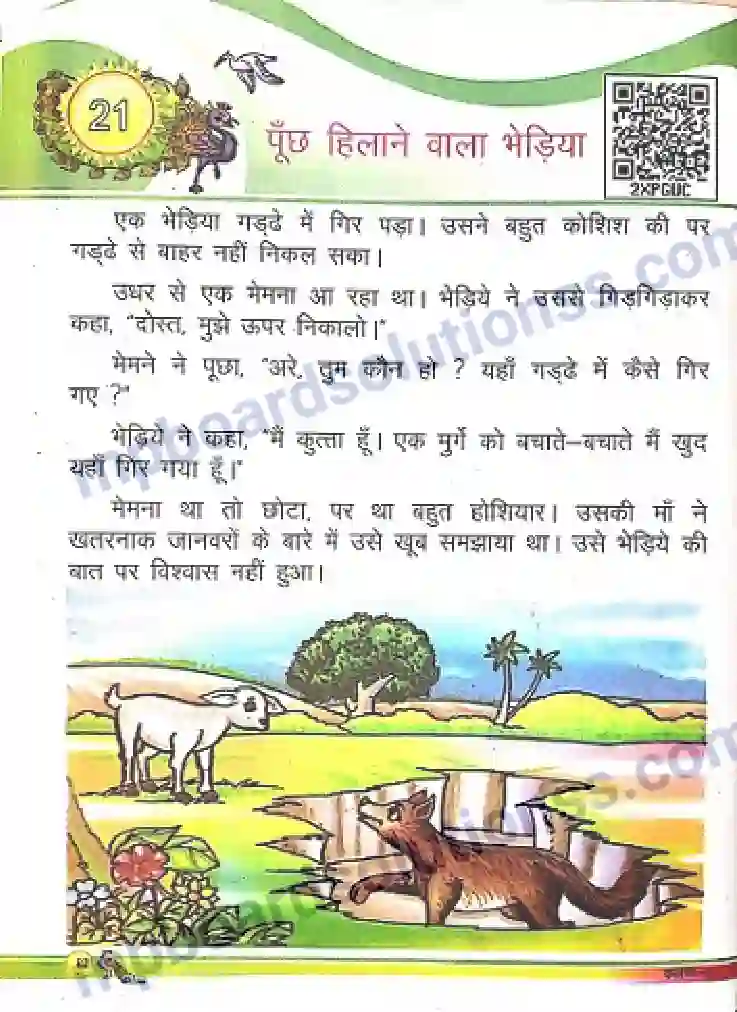 21
पूँछ हिलाने वाला भेड़िया
2XPGUC
एक भेड़िया गड्ढे में गिर पड़ा। उसने बहुत कोशिश की पर
गड्ढे से बाहर नहीं निकल सका।
उधर से एक मेमना आ रहा था। भेड़िये ने उससे गिड़गिड़ाकर
कहा, "दोस्त, मुझे ऊपर निकालो।"
मेमने ने पूछा, "अरे, तुम कौन हो ? यहाँ गड्ढे में कैसे गिर
गए ?"
भेड़िये ने कहा, "मैं कुत्ता हूँ। एक मुर्गे को बचाते–बचाते मैं खुद
यहाँ गिर गया हूँ।"
मेमना था तो छोटा, पर था बहुत होशियार। उसकी माँ ने
खतरनाक जानवरों के बारे में उसे खूब समझाया था। उसे भेड़िये की
बात पर विश्वास नहीं हुआ।
mpboardsolutionss.com
mpboardsolutionss.com